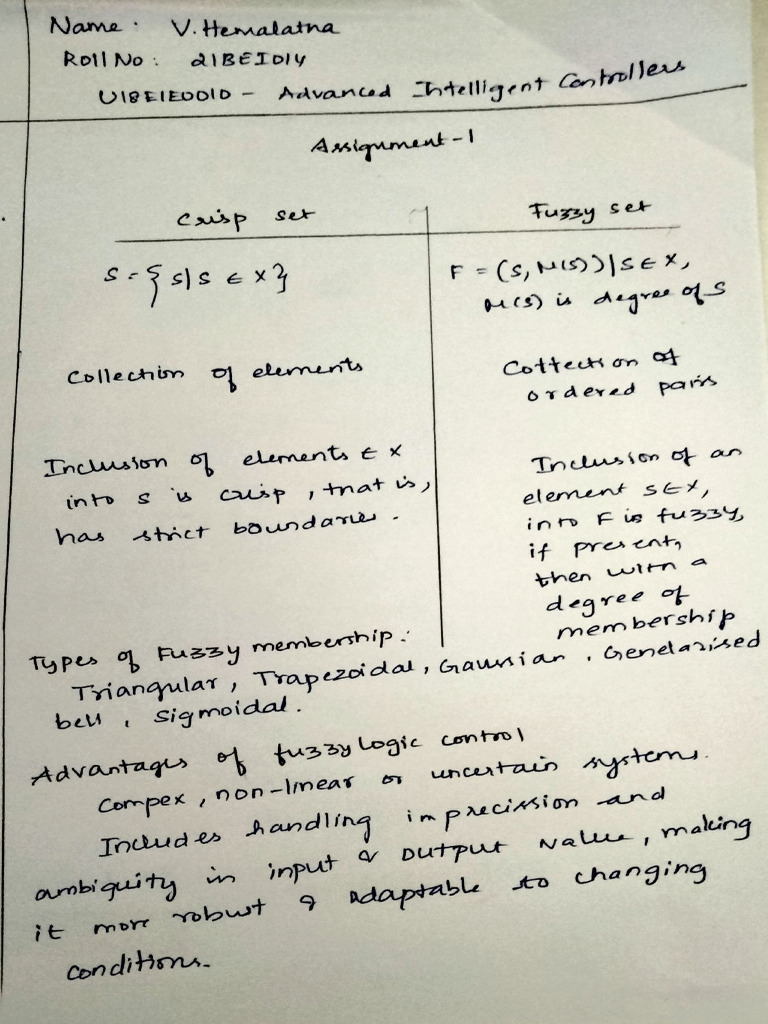 Name : V. Hemalatha
Roll No : 21BEI014
U18EIE0010 - Advanced Intelligent Controllers
Assignment-1
Crisp set
Fuzzy set
S = { s|s ∈ x}
F = (S, μ(s))|s ∈ X,
μ(s) is degree of s
Collection of elements
Collection of
ordered pairs
Inclusion of elements ∈ x
into s is crisp, that is,
has strict boundaries.
Inclusion of an
element s∈x,
into F is fuzzy,
if present,
then with a
degree of
membership
Types of Fuzzy membership:
Triangular, Trapezoidal, Gaussian, Genelarised
bell, Sigmoidal.
Advantages of fuzzy logic control
Compex, non-linear or uncertain systems.
Includes handling imprecission and
ambiguity in input & output value, making
it more robust & adaptable to changing
conditions.